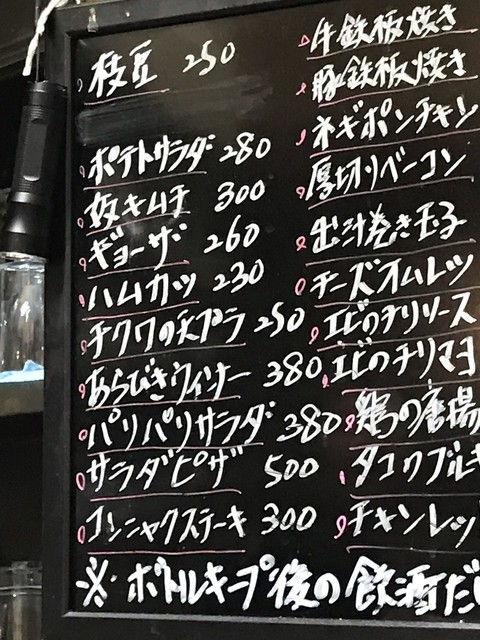 枝豆 250
ポテトサラダ 280
キムチ 300
ギョーザ 260
ハムカツ 230
チクワの天プラ 250
あらびきウィンナー 380
パリパリサラダ 380
サラダピザ 500
コンニャクステーキ 300
牛鉄板焼き
豚鉄板焼き
ネギポンチキン
厚切りベーコン
出汁巻き玉子
チーズオムレツ
エビのチリソース
エビのチリマヨ
鶏の唐揚
タコのブルギ
チキンレッ
※ボトルキープ後の飲酒だ